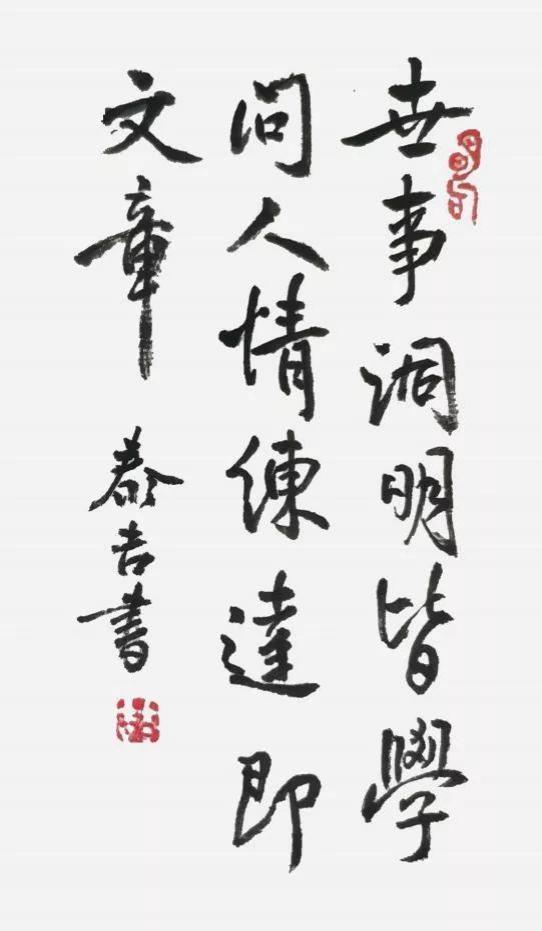 世事洞明皆學
問人情練達即
文章
泰吉書